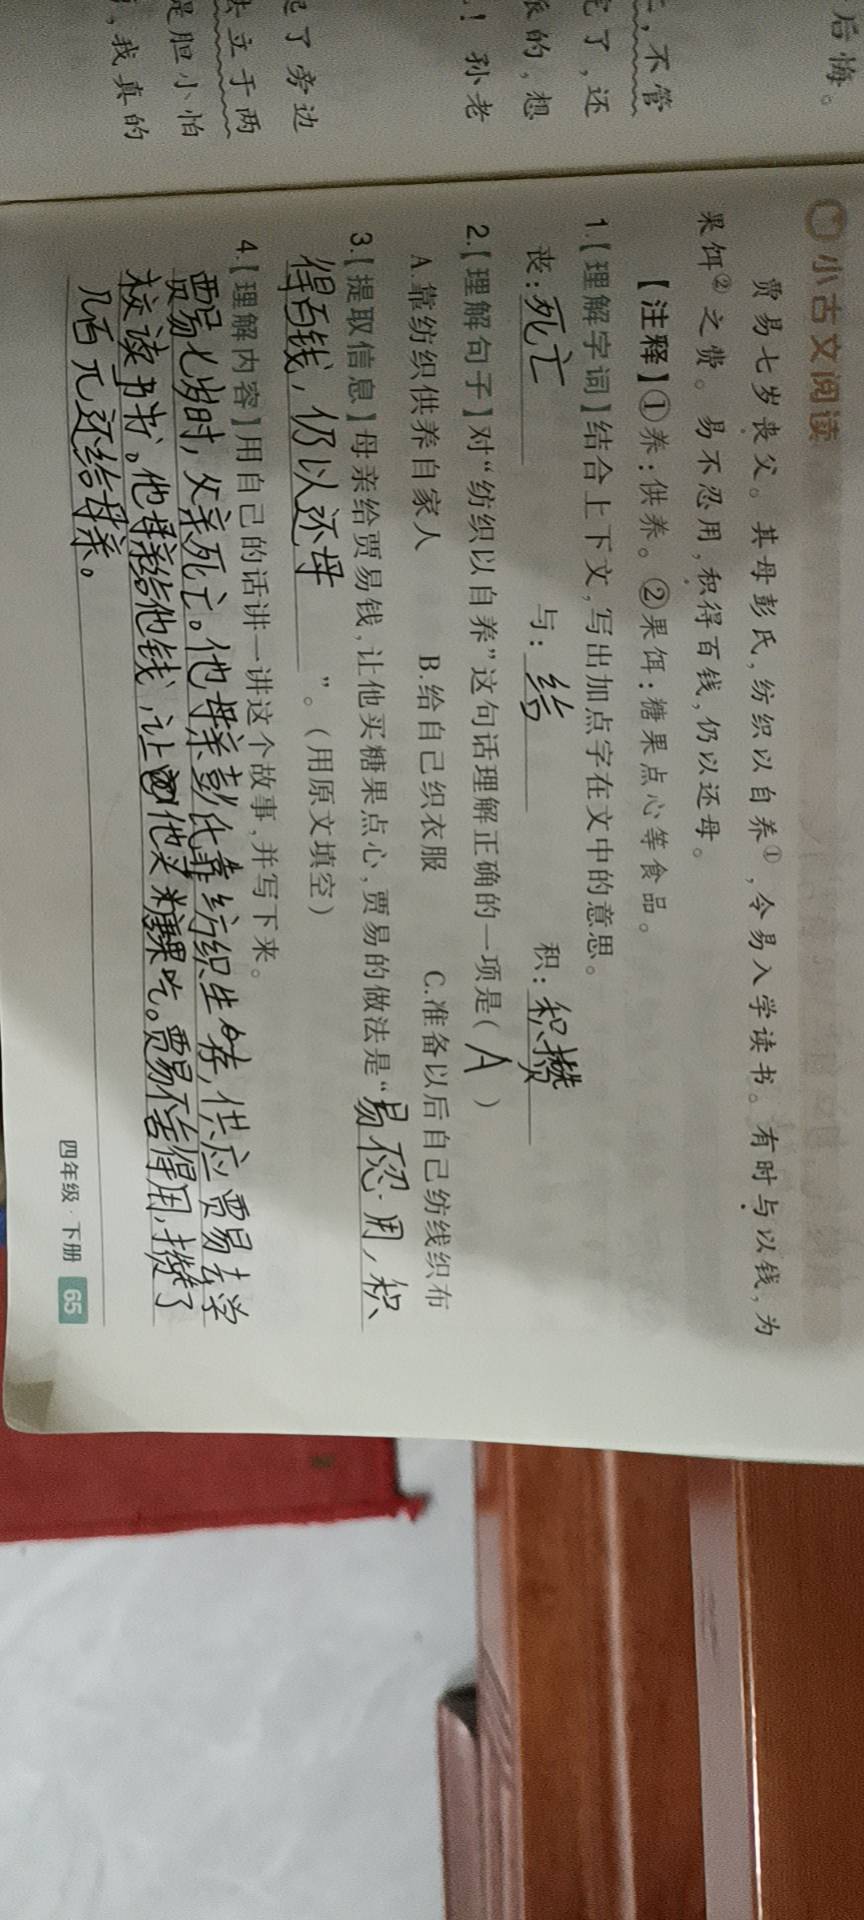 后悔。
，不管
了，还
的，想
！孙老
了旁边
立于两
是胆小怕
，我真的
小古文阅读
贾易七岁丧父。其母彭氏，纺织以自养①，令易入学读书。有时与以钱，为
果饵②之费。易不忍用，积得百钱，仍以还母。
【注释】①养：供养。②果饵：糖果点心等食品。
1.【理解字词】结合上下文，写出加点字在文中的意思。
丧：死亡 与：给 积：积攒
2.【理解句子】对“纺织以自养”这句话理解正确的一项是（ A ）
A.靠纺织供养自家人 B.给自己织衣服 C.准备以后自己纺线织布
3.【提取信息】母亲给贾易钱，让他买糖果点心，贾易的做法是“易不忍用，积
得百钱，仍以还母”。（用原文填空）
4.【理解内容】用自己的话讲一讲这个故事，并写下来。
贾易七岁时，父亲死亡。他母亲彭氏靠纺织生存，供应贾易去学
校读书。他母亲给他钱，让他买糖果吃。贾易不舍得用，攒了
几百元还给母亲。
四年级·下册 65